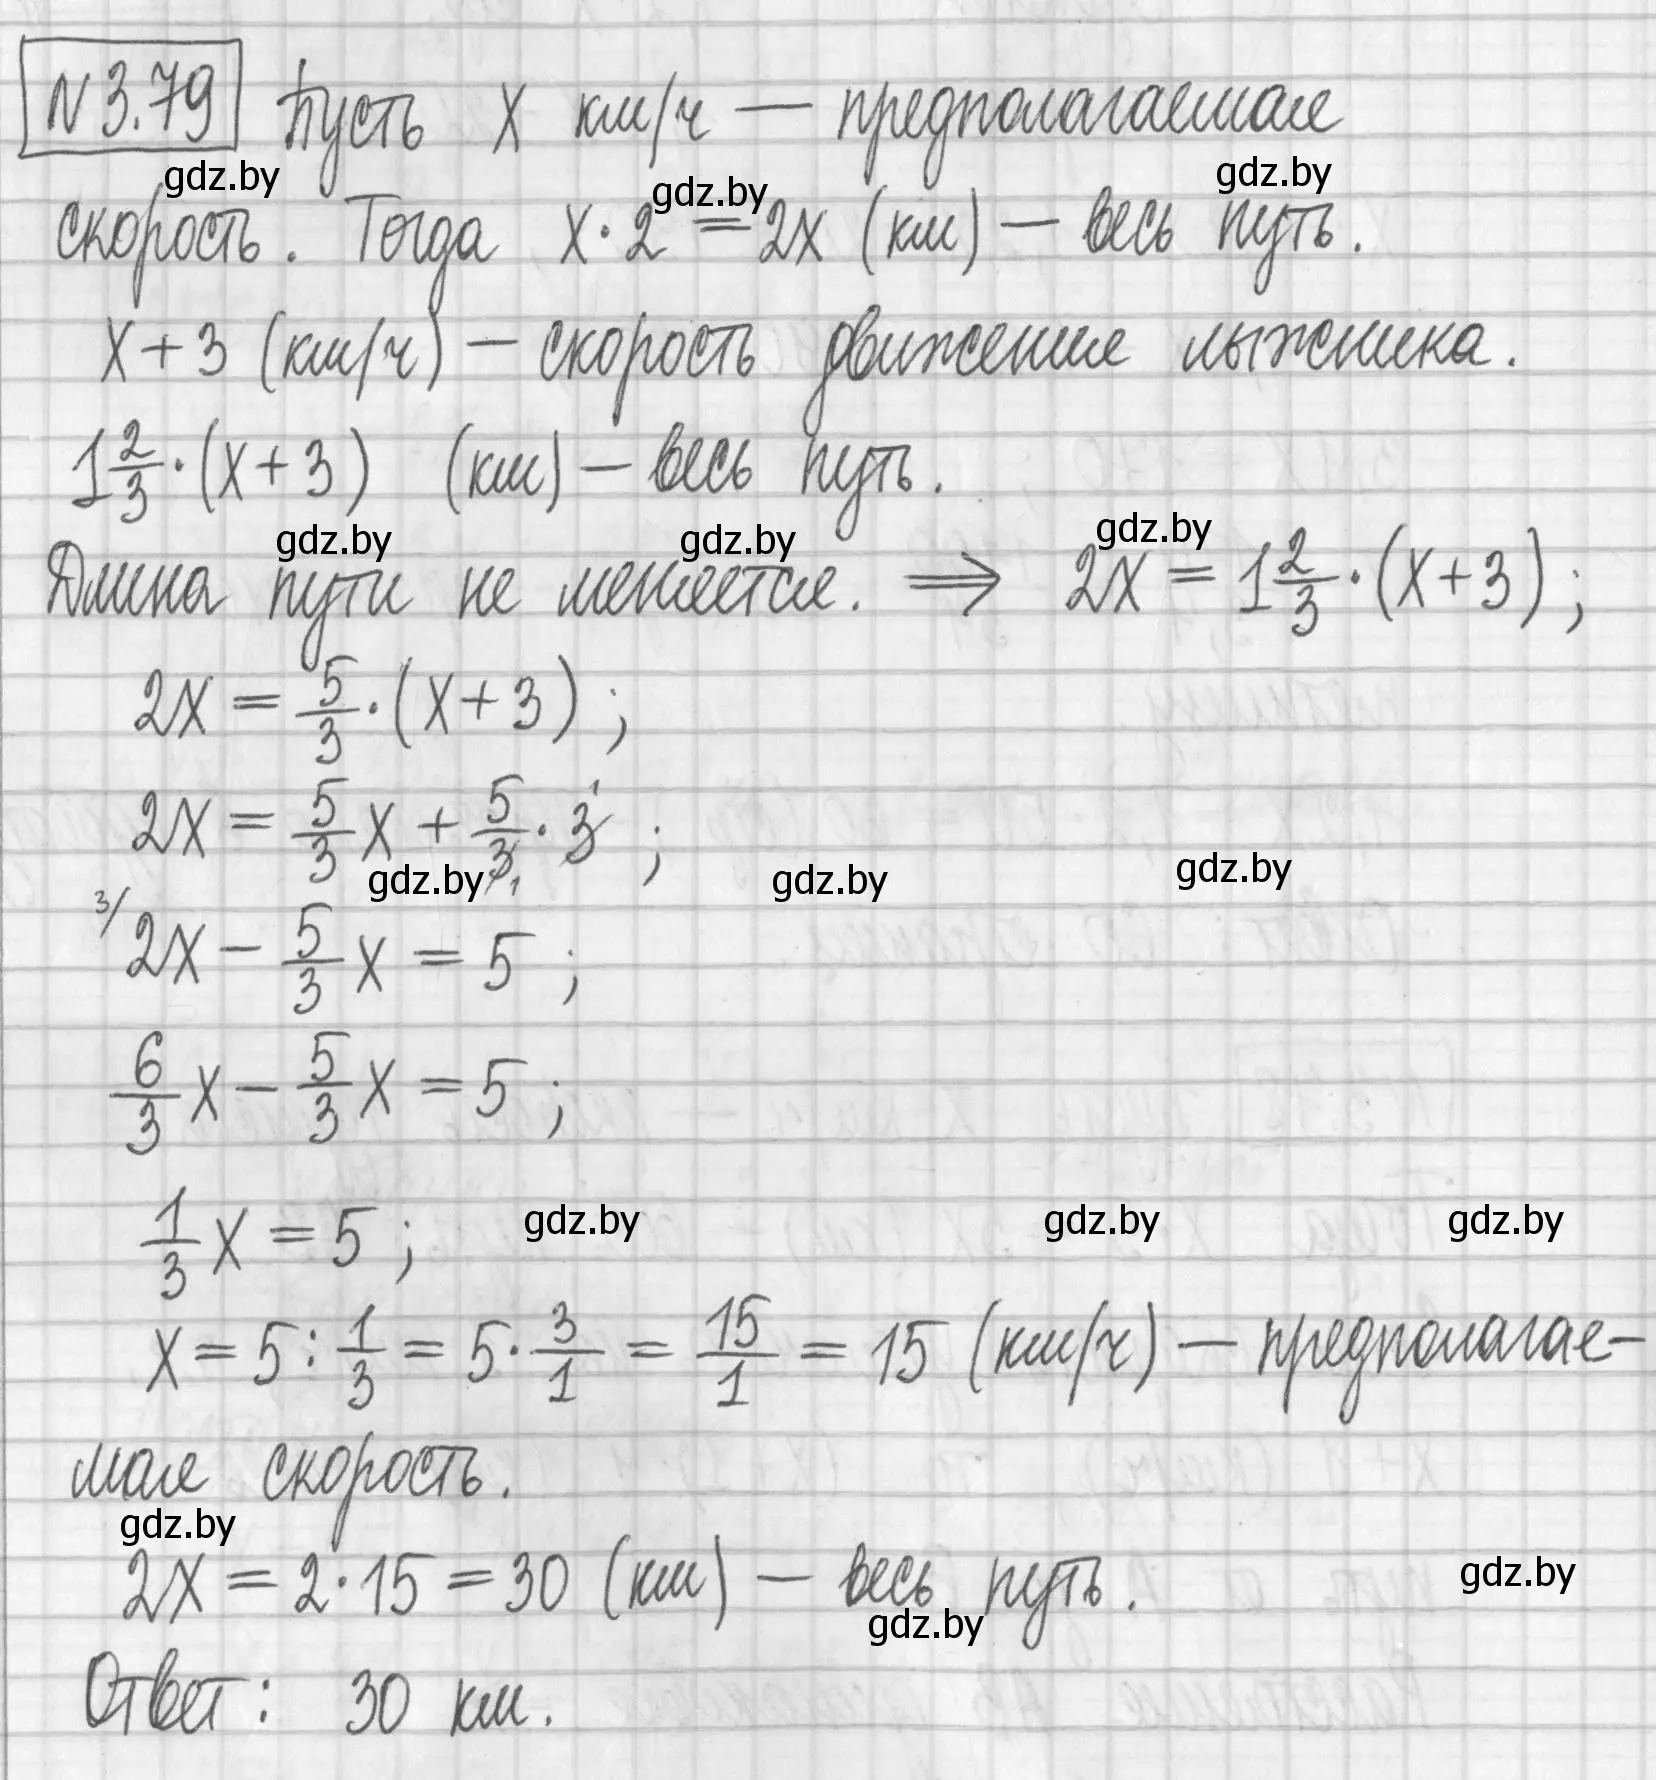 N 3.79 Пусть x км/ч — предполагаемая
gdz.by gdz.by gdz.by
скорость. Тогда x · 2 = 2x (км) — весь путь.
x + 3 (км/ч) — скорость движения лыжника.
1 2/3 · (x + 3) (км) — весь путь.
gdz.by gdz.by gdz.by
Длина пути не меняется. ⟹ 2x = 1 2/3 · (x + 3) ;
2x = 5/3 · (x + 3) ;
2x = 5/3 x + 5/3 1 · 3 1 ;
gdz.by gdz.by gdz.by
3/ 2x − 5/3 x = 5 ;
6/3 x − 5/3 x = 5 ;
1/3 x = 5 ;
gdz.by gdz.by gdz.by
x = 5 : 1/3 = 5 · 3/1 = 15/1 = 15 (км/ч) — предполагае-
мая скорость.
gdz.by
2x = 2 · 15 = 30 (км) — весь путь.
gdz.by gdz.by
Ответ: 30 км.